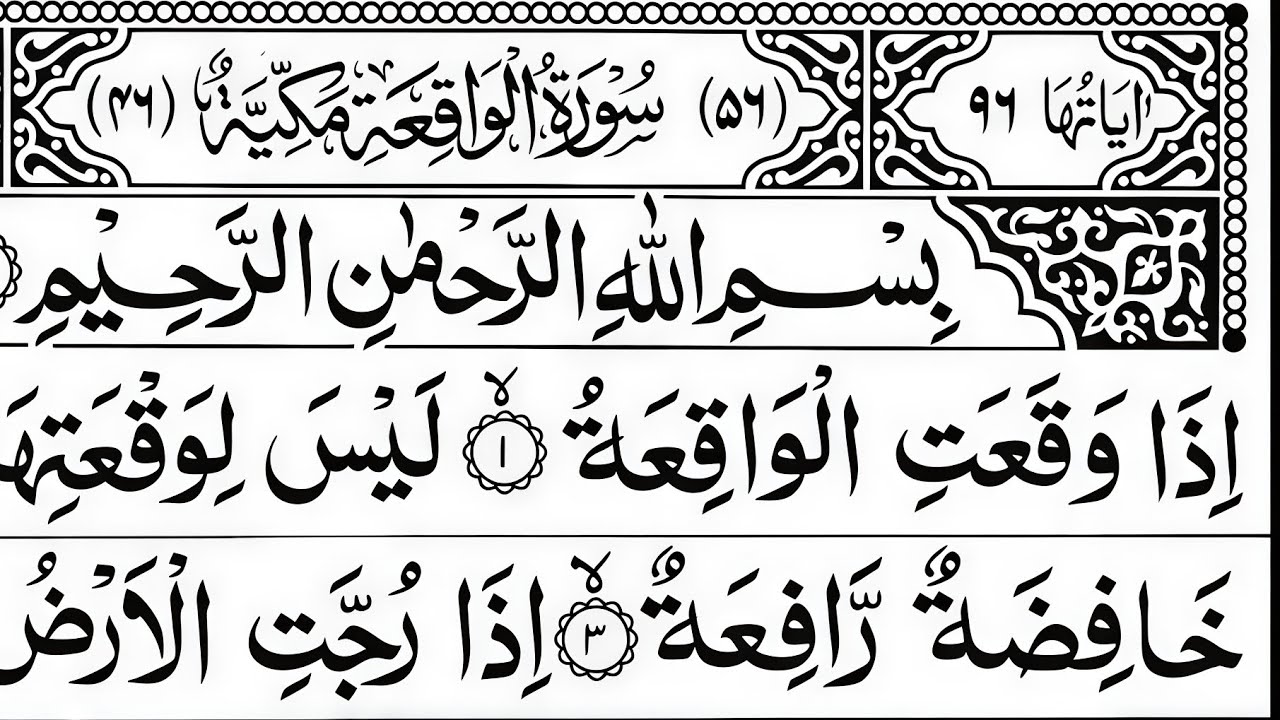 اٰیَاتُهَا ۹۶ (۵۶) سُوْرَةُ الْوَاقِعَةِ مَكِّيَّةٌ (۴۶)
بِسْمِ اللّٰهِ الرَّحْمٰنِ الرَّحِيْمِ
اِذَا وَقَعَتِ الْوَاقِعَةُ ۙ ۱ لَيْسَ لِوَقْعَتِهَا
خَافِضَةٌ رَّافِعَةٌ ۙ ۳ اِذَا رُجَّتِ الْاَرْضُ